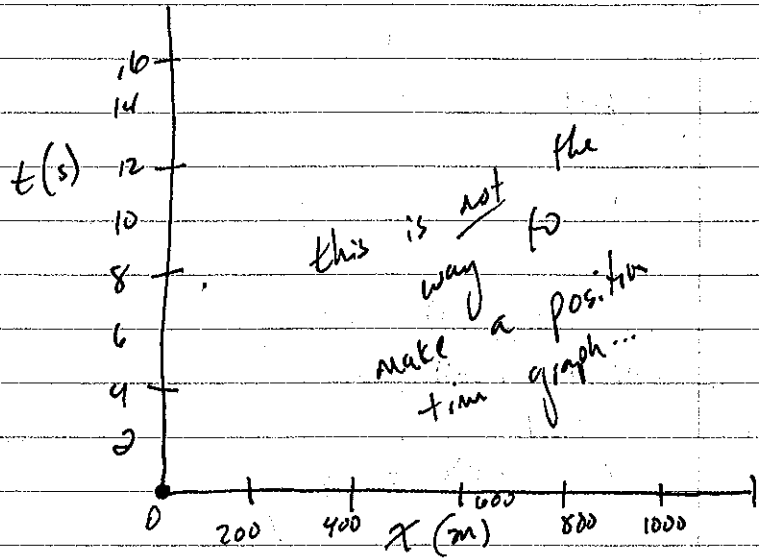 16
14
t(s) 12 the
10 this is not to
8 way
6 make a position
4 tim graph...
2
0 200 400 600 800 1000
x (m)